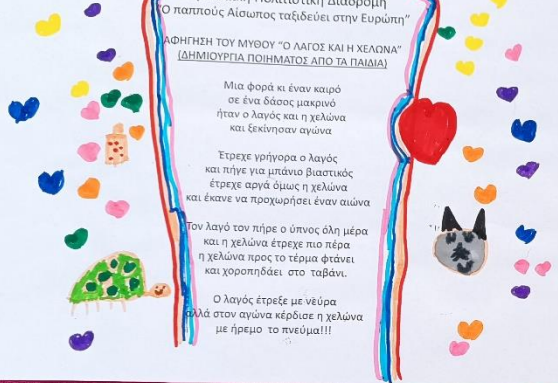 Πολιτιστική Διαδρομή
“Ο παππούς Αίσωπος ταξιδεύει στην Ευρώπη”
ΑΦΗΓΗΣΗ ΤΟΥ ΜΥΘΟΥ “Ο ΛΑΓΟΣ ΚΑΙ Η ΧΕΛΩΝΑ”
(ΔΗΜΙΟΥΡΓΙΑ ΠΟΙΗΜΑΤΟΣ ΑΠΟ ΤΑ ΠΑΙΔΙΑ)
Μια φορά κι έναν καιρό
σε ένα δάσος μακρινό
ήταν ο λαγός και η χελώνα
και ξεκίνησαν αγώνα
Έτρεχε γρήγορα ο λαγός
και πήγε για μπάνιο βιαστικός
έτρεχε αργά όμως η χελώνα
και έκανε να προχωρήσει έναν αιώνα
Τον λαγό τον πήρε ο ύπνος όλη μέρα
και η χελώνα έτρεχε πιο πέρα
η χελώνα προς το τέρμα φτάνει
και χοροπηδάει στο ταβάνι.
Ο λαγός έτρεξε με νεύρα
αλλά στον αγώνα κέρδισε η χελώνα
με ήρεμο το πνεύμα!!!